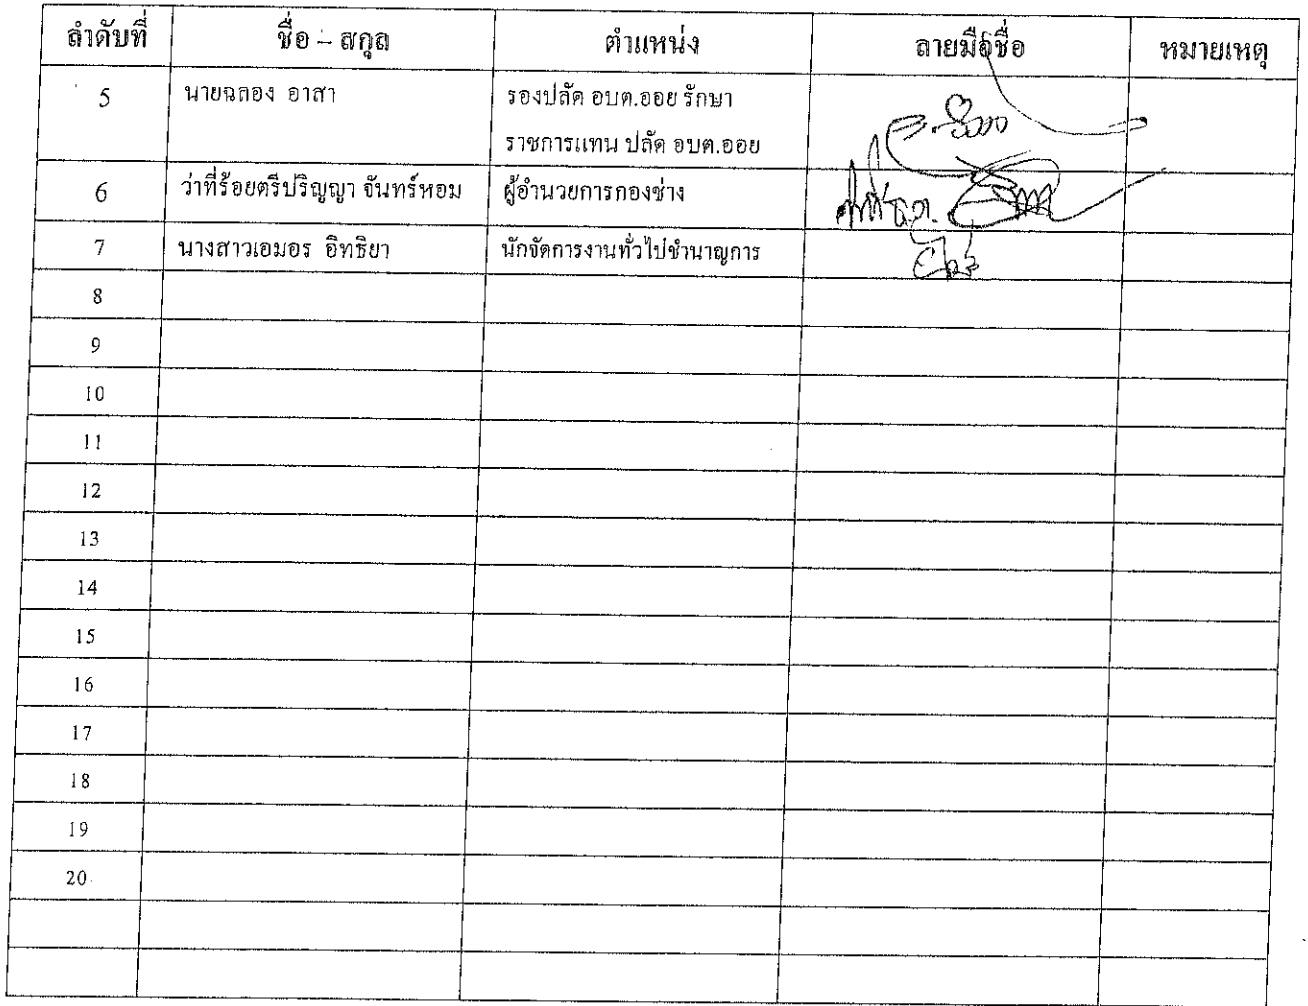 ลำดับที่ ชื่อ – สกุล ตำแหน่ง ลายมือชื่อ หมายเหตุ
5 นายฉลอง อาสา รองปลัด อบต.ออย รักษา
ราชการแทน ปลัด อบต.ออย
6 ว่าที่ร้อยตรีปริญญา จันทร์หอม ผู้อำนวยการกองช่าง
7 นางสาวเอมอร อิทธิยา นักจัดการงานทั่วไปชำนาญการ
8
9
10
11
12
13
14
15
16
17
18
19
20